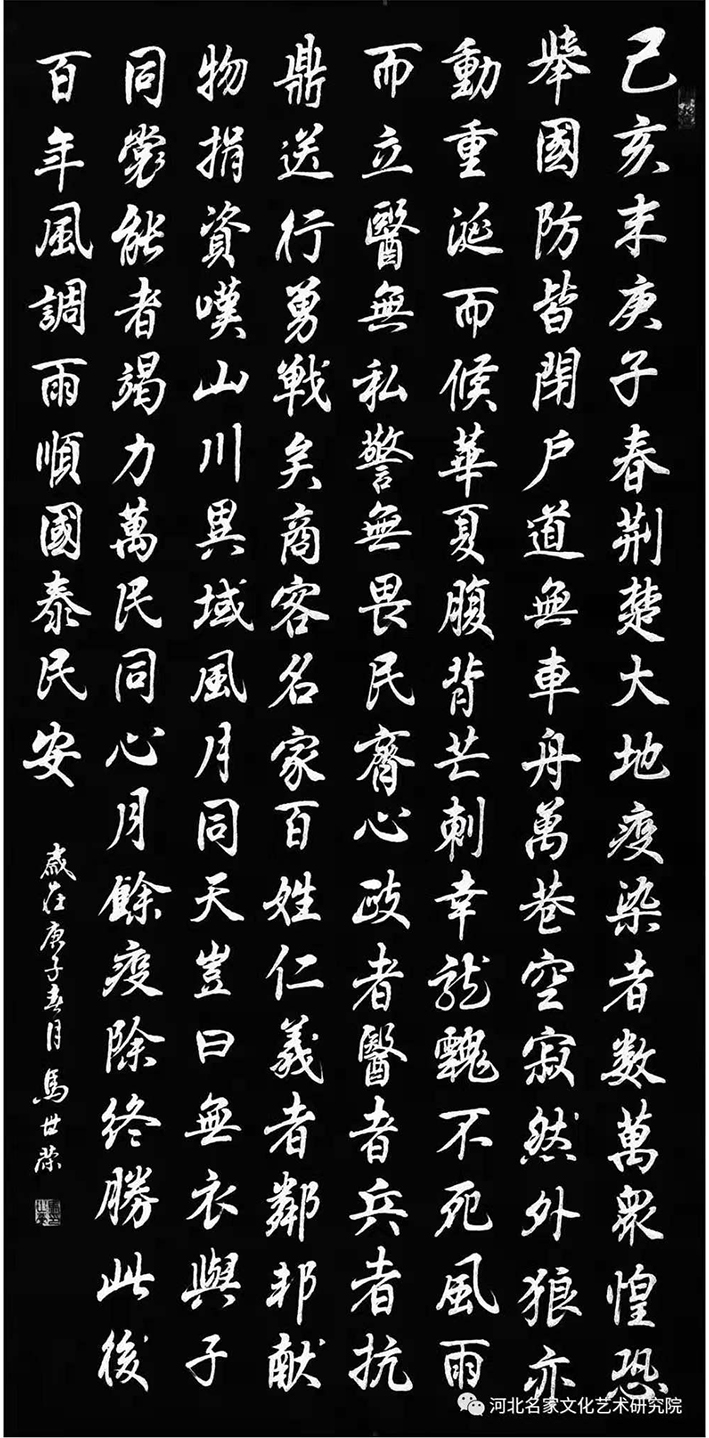 己亥末庚子春荆楚大地疫染者数萬衆惶恐
舉國防皆閉户道無車舟萬巷空寂然外狼亦
動重涎而候華夏腹背芒刺幸龍魂不死風雨
而立醫無私警無畏民齊心政者醫者兵者抗
鼎送行勇戰矣商客名家百姓仁義者鄰邦献
物捐資嘆山川異域風月同天豈曰無衣與子
同裳能者竭力萬民同心月餘疫除终勝此後
百年風調雨順國泰民安
歲在庚子春月馬世荣
河北名家文化艺术研究院